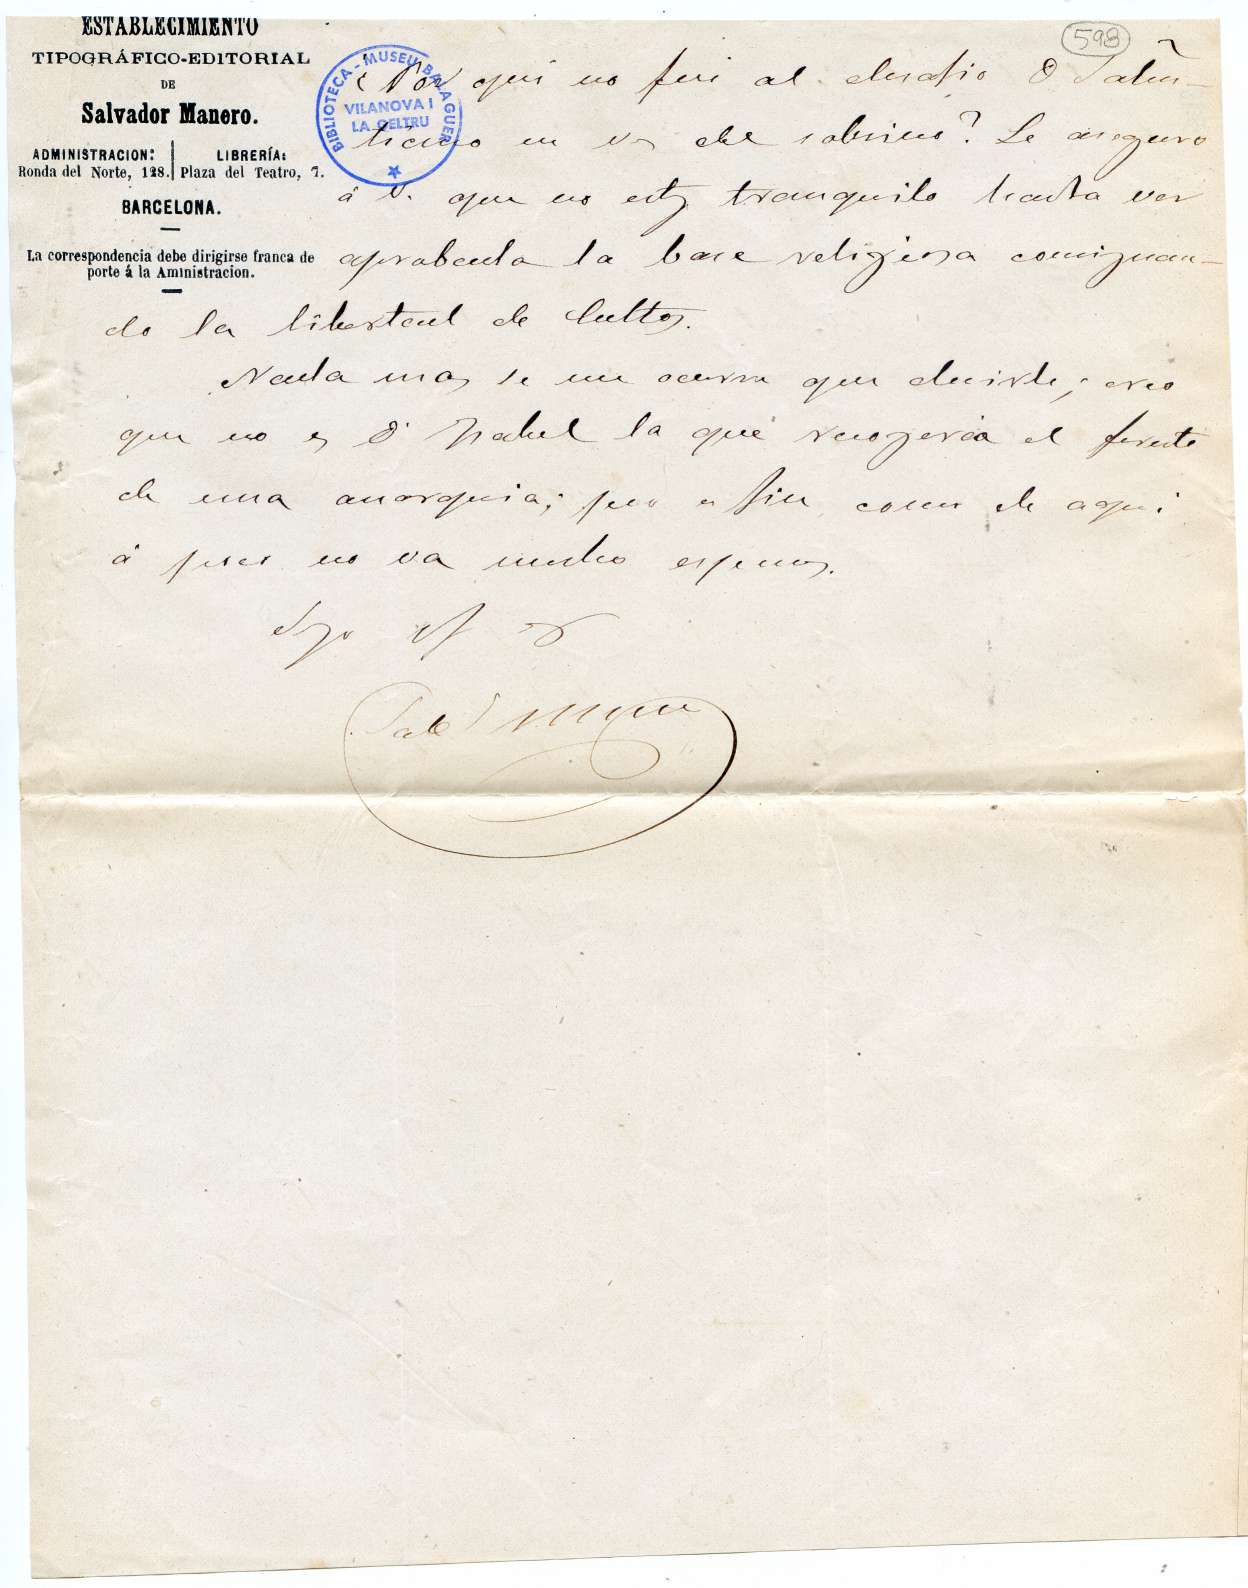 ESTABLECIMIENTO
TIPOGRÁFICO-EDITORIAL
DE
Salvador Manero.
ADMINISTRACION:
Ronda del Norte, 128.
LIBRERÍA:
Plaza del Teatro, 7.
BARCELONA.
La correspondencia debe dirigirse franca de
porte á la Aministracion.
BIBLIOTECA-MUSEU BALAGUER
VILANOVA I
LA GELTRU
598
¿Por qué no fué al desafio D Salus-
tiano en vez del sobrino? Le aseguro
á V. que no estoy tranquilo hasta ver
aprobada la base religiosa consignan-
do la libertad de Cultos.
Nada mas se me ocurre que decirle; creo
que no es Dª Isabel la que recogeria el fruto
de una anarquia; pero en fin como de aqui
á poco no va mucho esperemos.
Suyo
Salv Manero